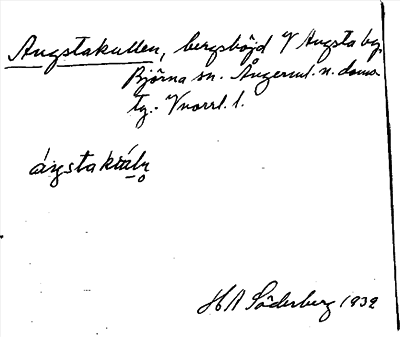 Angstakullen, bergshöjd V Angsta by,
Björna sn. Ångerml. n. doms-
tg. Vnorrl. l.
H A Söderberg 1932